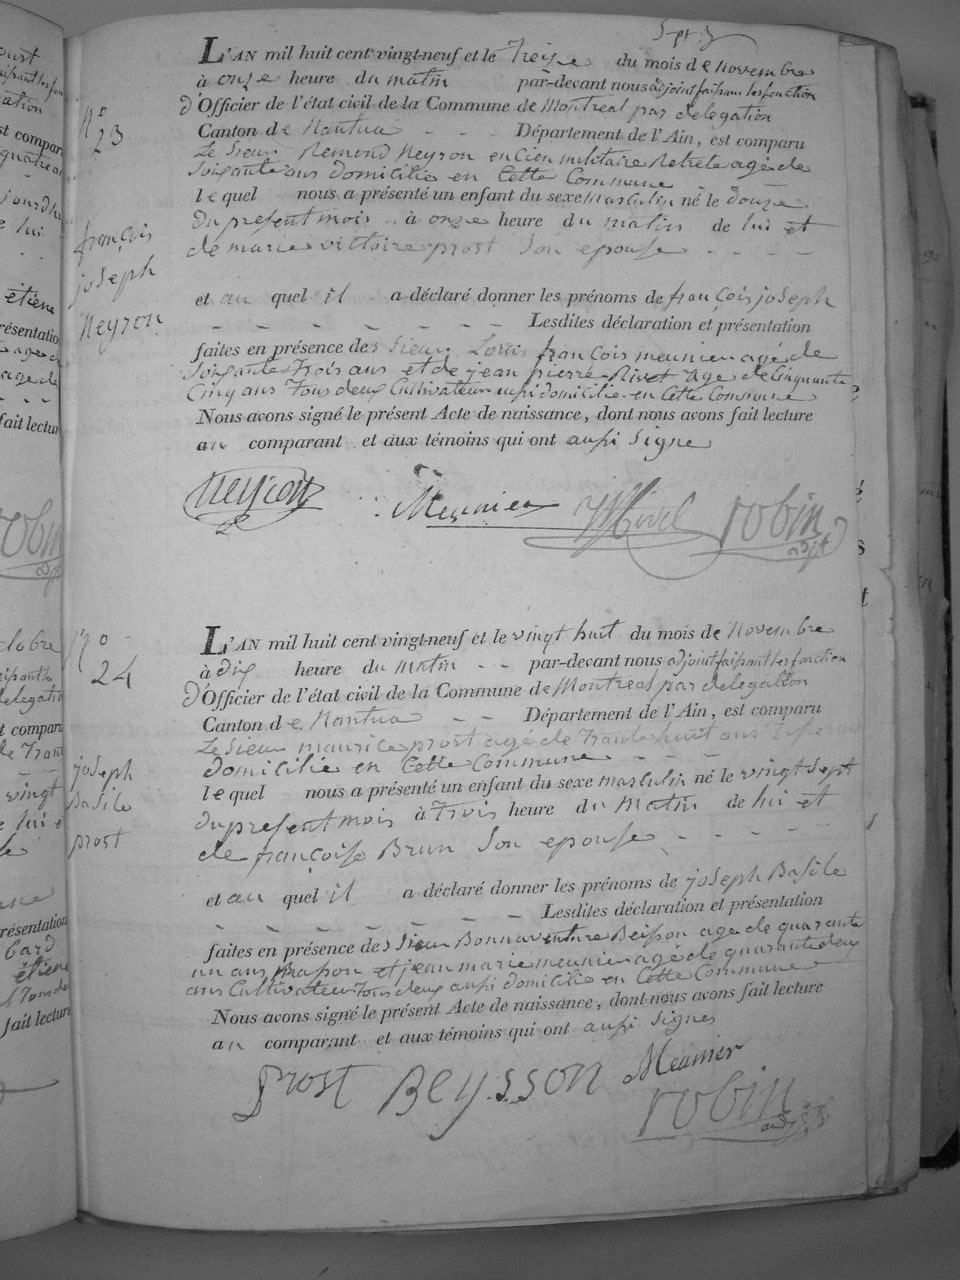 Sept 3
L'AN mil huit cent vingt-neuf et le Treize du mois de Novembre
à onze heure du matin par-devant nous adjoint faisant les fonction
d'Officier de l'état civil de la Commune de Montreal par delegation
Canton de Nantua - - - Département de l'Ain, est comparu
Le Sieur Remond Neyron encien militaire Retrete agé de
soixante ans domicilié en Cette Commune
lequel nous a présenté un enfant du sexe masculin né le douze
du present mois à onze heure du matin de lui et
de marie victoire prost son epouse - - - -
et au quel il a déclaré donner les prénoms de françois joseph
- - - - - - - Lesdites déclaration et présentation
faites en présence des Sieur Louis françois meunier agé de
soixante Trois ans et de jean pierre Rivet age de Cinquante
Cinq ans Tous deux Cultivateur aussi domicilié en Cette Commune
Nous avons signé le présent Acte de naissance, dont nous avons fait lecture
au comparant et aux témoins qui ont aussi signe
N° 23
françois
joseph
Neyron
Neyron Meunier Rivet robin adjt
L'AN mil huit cent vingt-neuf et le vingt huit du mois de Novembre
à dix heure du matin - - par-devant nous adjoint faisant les fonction
d'Officier de l'état civil de la Commune de Montreal par delegation
Canton de Nantua - - Département de l'Ain, est comparu
Le Sieur maurice prost agé de Trante huit ans
domicilié en Cette Commune - - - -
lequel nous a présenté un enfant du sexe masculin né le vingt Sept
du present mois à Trois heure du Matin de lui et
de françoise Brun son epouse - - - -
et au quel il a déclaré donner les prénoms de joseph Basile
- - - - - - - Lesdites déclaration et présentation
faites en présence des Sieur Bonnaventure Beisson age de quarante
un ans Masson et jean marie meunier agé de quarante deux
ans Cultivateur Tous deux aussi domicilié en Cette Commune
Nous avons signé le présent Acte de naissance, dont nous avons fait lecture
au comparant et aux témoins qui ont aussi signes
N° 24
joseph
Basile
prost
Prost Beysson Meunier
robin adjt